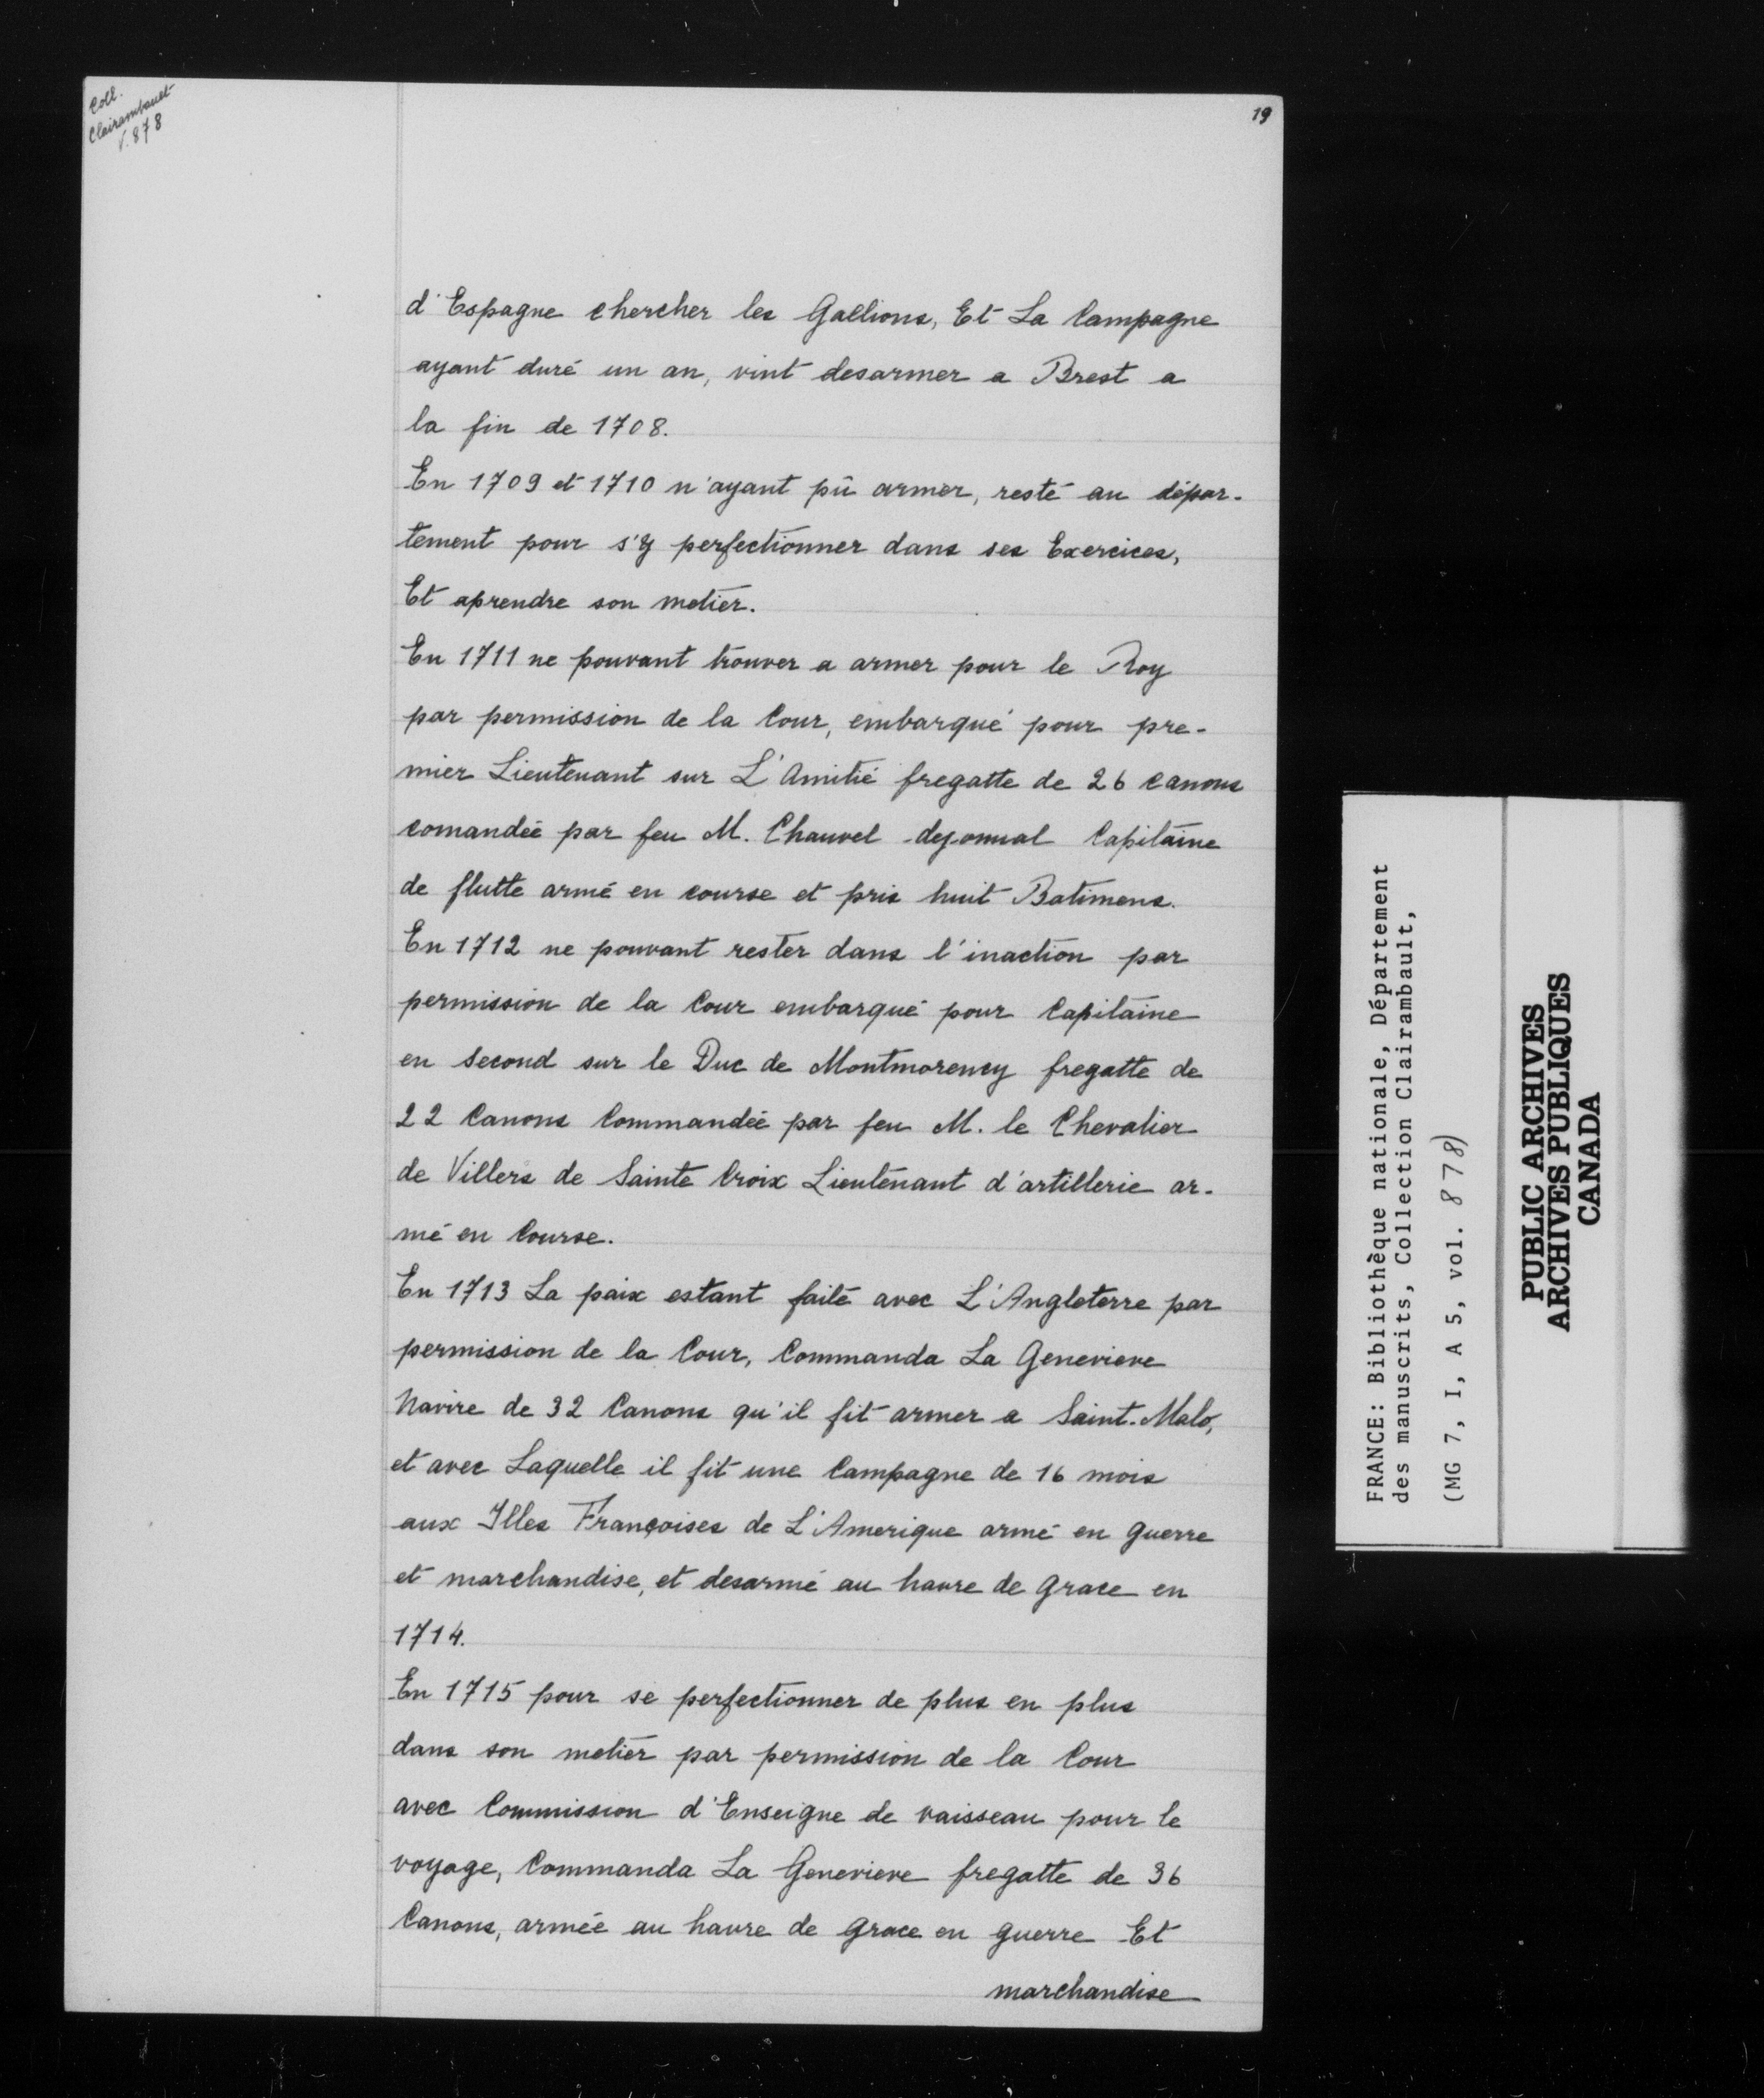 Coll.
Clairambault
V. 878
19
d'Espagne chercher les Gallions, Et La Campagne
ayant duré un an, vint desarmer a Brest a
la fin de 1708.
En 1709 et 1710 n'ayant pû armer, resté au dépar-
tement pour s'y perfectionner dans ses Exercices,
Et aprendre son metier.
En 1711 ne pouvant trouver a armer pour le Roy
par permission de la Cour, embarqué pour pre-
mier Lieutenant sur L'Amitié fregatte de 26 canons
comandée par feu M. Chauvel Capitaine
de flutte armé en course et pris huit Batimens.
En 1712 ne pouvant rester dans l'inaction par
permission de la Cour embarqué pour Capitaine
en Second sur le Duc de Montmorency fregatte de
22 Canons Commandée par feu M. le Chevalier
de Villers de Sainte Croix Lieutenant d'artillerie ar-
mé en Course.
En 1713 La paix estant faite avec L'Angleterre par
permission de la Cour, Commanda La Genevieve
Navire de 32 Canons qu'il fit armer a Saint-Malo,
et avec Laquelle il fit une Campagne de 16 mois
aux Illes Françoises de L'Amerique armé en guerre
et marchandise, et desarmé au havre de grace en
1714.
En 1715 pour se perfectionner de plus en plus
dans son metier par permission de la Cour
avec Commission d'Enseigne de vaisseau pour le
voyage, Commanda La Genevieve fregatte de 36
Canons, armée au havre de grace en guerre Et
marchandise
FRANCE: Bibliothèque nationale, Département
des manuscrits, Collection Clairambault,
(MG 7, I, A 5, vol. 878)
PUBLIC ARCHIVES
ARCHIVES PUBLIQUES
CANADA